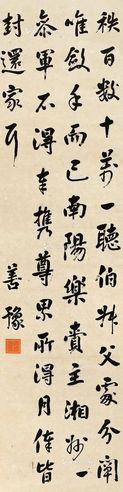 秩百數十萬一聽伯叔父處分闔
唯斂手而已南陽樂賣主湘州
參軍不得奉攜尊累所得月俸皆
封還家耳
善豫